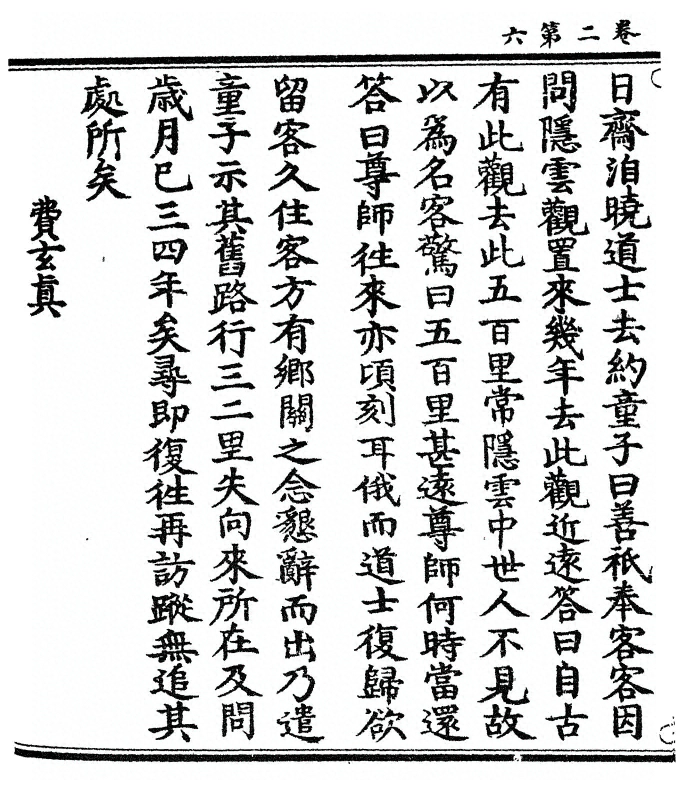 卷二第六
日齋洎曉道士去約童子曰善祇奉客客因
問隱雲觀置來幾年去此觀近遠答曰自古
有此觀去此五百里常隱雲中世人不見故
以為名客驚曰五百里甚遠尊師何時當還
答曰尊師徃來亦頃刻耳俄而道士復歸欲
留客久住客方有鄉關之念懇辭而出乃遣
童子示其舊路行三二里失向來所在及問
歲月已三四年矣尋即復徃再訪蹤無追其
處所矣
費玄真